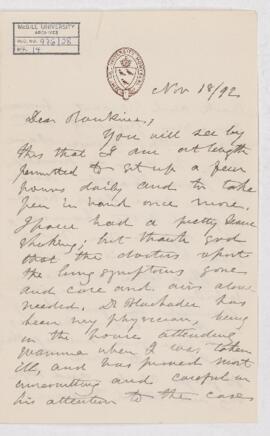 McGILL UNIVERSITY
ARCHIVES
ACC. NO. 976/28
REF. 14
Nov 18/92
Dear Rankine,
You will see by
this that I am at length
permitted to sit up a few
hours daily and to take
pen in hand once more.
I have had a pretty severe
shaking; but thank God
that the doctors report
the lung symptoms gone
and care and aims alone
needed. Dr Blackader has
been my physician, being
in the house attending
Gramma when I was taken
ill, and has proved most
unremitting and careful in
his attention to the cases